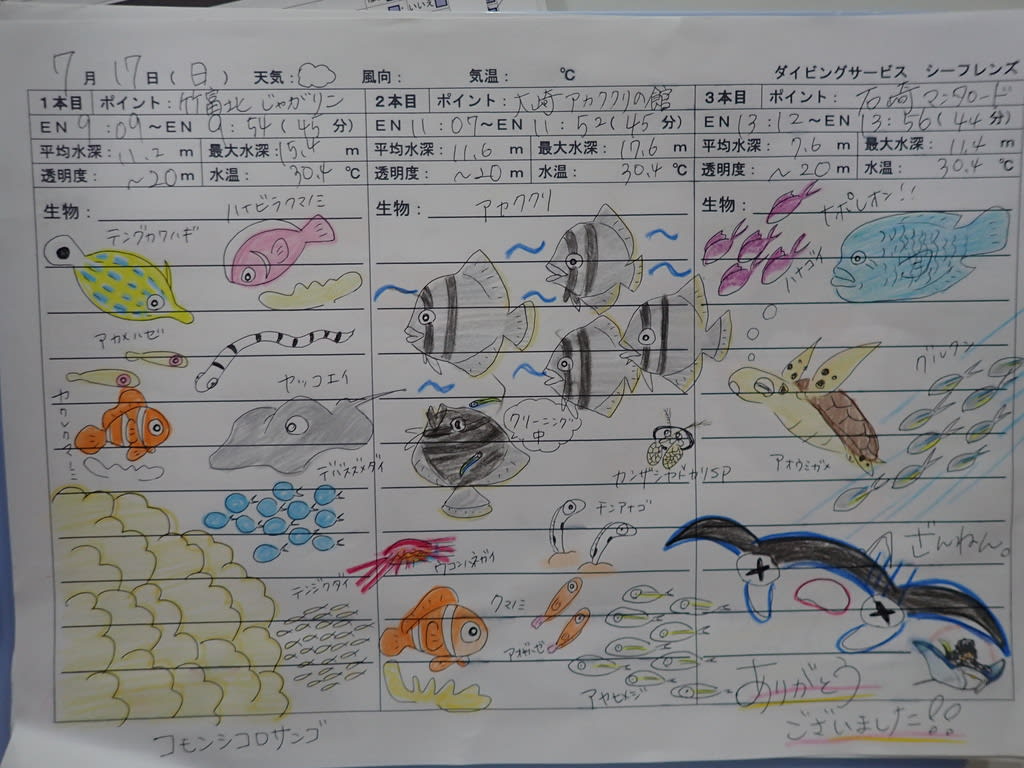 いいえ
7月17日(日) 天気: 風向: 気温: ℃
ダイビングサービス シーフレンズ
1本目 ポイント: 竹富北 じゃがリン
EN 9:09～EN 9:54(45分)
平均水深: 11.2 m 最大水深: 15.4 m
透明度: ～20m 水温: 30.4 ℃
生物:
ハナビラクマノミ
テングカワハギ
アカメハゼ
ヤッコエイ
カクレクマノミ
デバスズメダイ
テンジクダイ
コモンシコロサンゴ
2本目 ポイント: 大崎 アカククリの館
EN 11:07～EN 11:52(45分)
平均水深: 11.6 m 最大水深: 17.6 m
透明度: ～20m 水温: 30.4 ℃
生物: アカククリ
クリーニング
中
カンザシヤドカリSP
チンアナゴ
ウコンハネガイ
クマノミ
アオギハゼ
アヤヒメジ
3本目 ポイント: 石崎 マンタロード
EN 13:12～EN 13:56(44分)
平均水深: 7.6 m 最大水深: 11.4 m
透明度: ～20m 水温: 30.4 ℃
生物:
ナポレオン!!
ハナゴイ
グルクン
アオウミガメ
ざんねん。
ありがとう
ございました!!